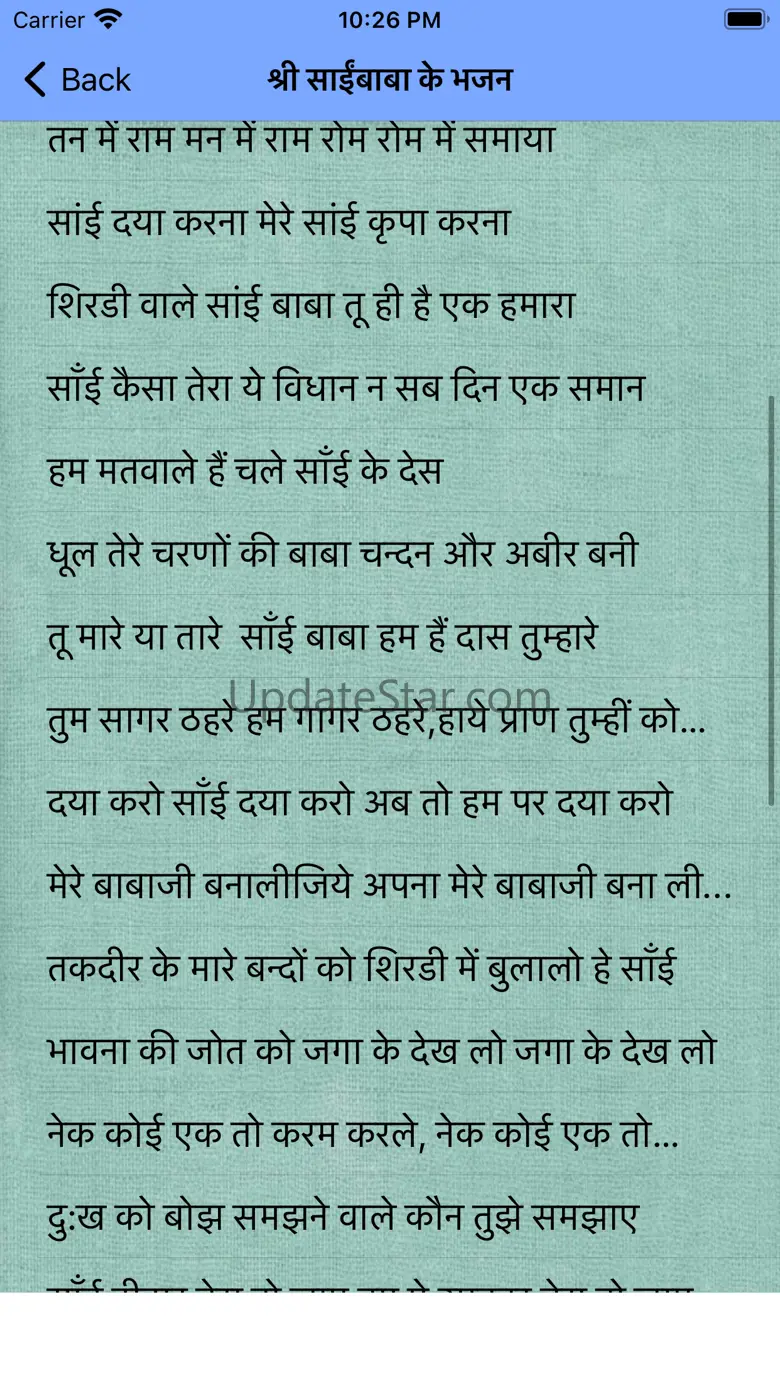 Carrier 10:26 PM
Back श्री साईंबाबा के भजन
तन में राम मन में राम रोम रोम में समाया
सांई दया करना मेरे सांई कृपा करना
शिरडी वाले सांई बाबा तू ही है एक हमारा
साँई कैसा तेरा ये विधान न सब दिन एक समान
हम मतवाले हैं चले साँई के देस
धूल तेरे चरणों की बाबा चन्दन और अबीर बनी
तू मारे या तारे साँई बाबा हम हैं दास तुम्हारे
UpdateStar.com
तुम सागर ठहरे हम गागर ठहरे,हाये प्राण तुम्हीं को...
दया करो साँई दया करो अब तो हम पर दया करो
मेरे बाबाजी बनालीजिये अपना मेरे बाबाजी बना ली...
तकदीर के मारे बन्दों को शिरडी में बुलालो हे साँई
भावना की जोत को जगा के देख लो जगा के देख लो
नेक कोई एक तो करम करले, नेक कोई एक तो...
दुःख को बोझ समझने वाले कौन तुझे समझाए